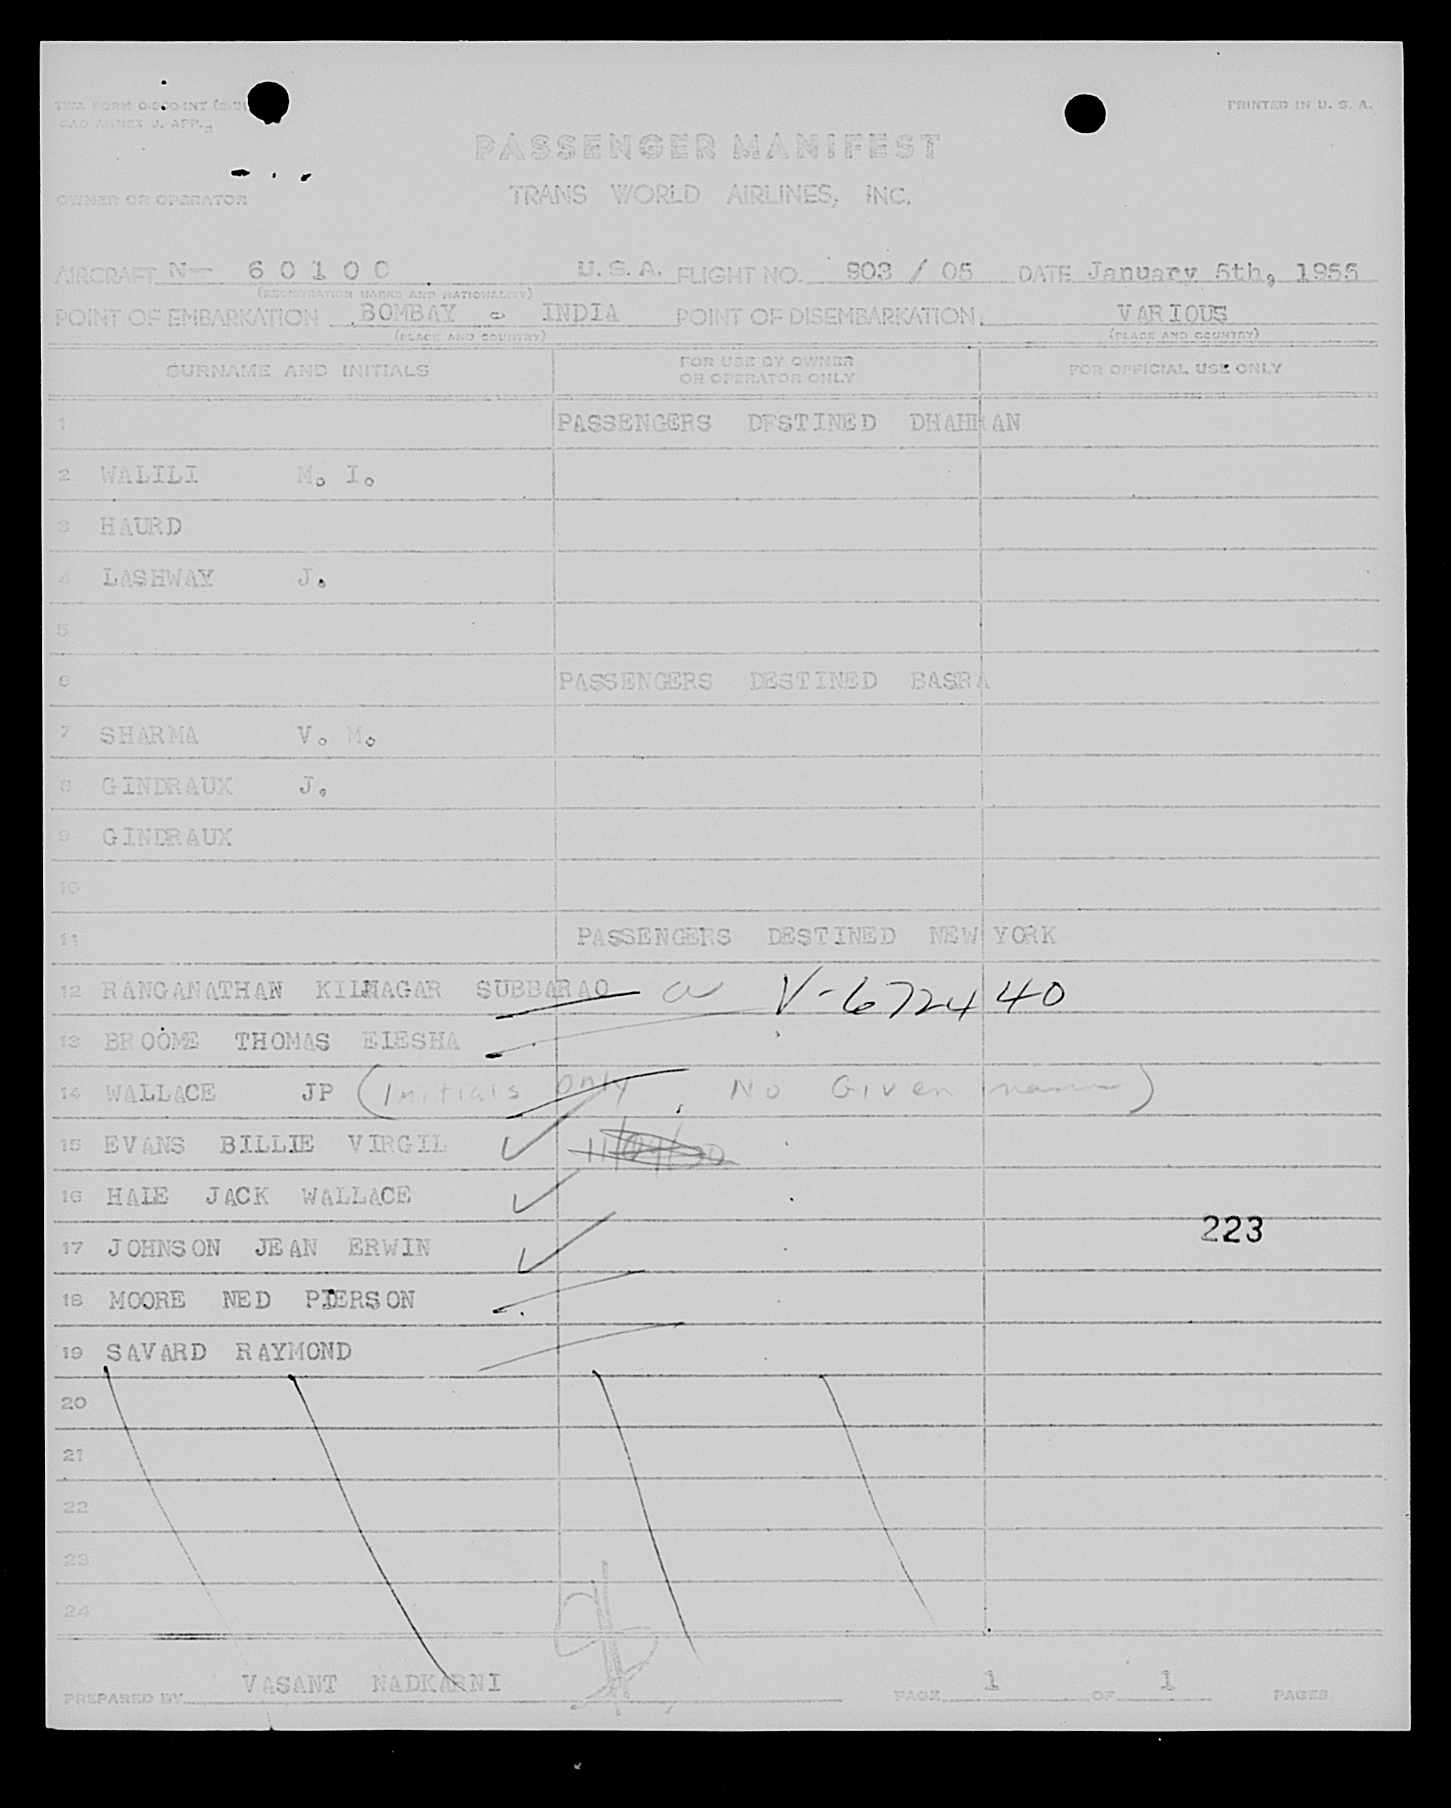 PRINTED IN U. S. A.
PASSENGER MANIFEST
OWNER OR OPERATOR TRANS WORLD AIRLINES, INC.
AIRCRAFT N- 60100 U.S.A. FLIGHT NO. 903 / 05 DATE January 5th, 1955
(REGISTRATION MARKS AND NATIONALITY)
POINT OF EMBARKATION BOMBAY - INDIA POINT OF DISEMBARKATION VARIOUS
(PLACE AND COUNTRY) (PLACE AND COUNTRY)
SURNAME AND INITIALS FOR USE BY OWNER OR OPERATOR ONLY FOR OFFICIAL USE ONLY
1 PASSENGERS DESTINED DHAHRAN
2 WALILI M. I.
3 HAURD
4 LASHWAY J.
5
6 PASSENGERS DESTINED BASRA
7 SHARMA V. M.
8 GINDRAUX J.
9 GINDRAUX
10
11 PASSENGERS DESTINED NEW YORK
12 RANGANATHAN KILNAGAR SUBBARAO V-672440
13 BROOME THOMAS ELESHA
14 WALLACE JP (Initials only, No Given name)
15 EVANS BILLIE VIRGIL
16 HALE JACK WALLACE
223
17 JOHNSON JEAN ERWIN
18 MOORE NED PIERSON
19 SAVARD RAYMOND
20
21
22
23
24
PREPARED BY VASANT NADKARNI PAGE 1 OF 1 PAGES